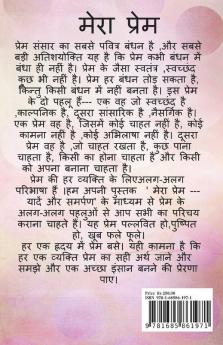 मेरा प्रेम
प्रेम संसार का सबसे पवित्र बंधन है ,और सबसे
बड़ी अतिशयोक्ति यह है कि प्रेम कभी बंधन में
बंधा ही नहीं है। प्रेम के जैसा स्वतंत्र ,स्वच्छंद
कुछ भी नहीं है। प्रेम हर बंधन तोड़ सकता है,
किन्तु किसी बंधन में नहीं बनता है। इस प्रेम
के दो पहलू हैं--- एक वह जो स्वच्छंद है
,काल्पनिक है, दूसरा सांसारिक है ,नैसर्गिक है।
एक प्रेम वह है, जिसमें कोई चाहत नहीं है, कोई
कामना नहीं है ,कोई अभिलाषा नहीं है। दूसरा
प्रेम वह है ,जो चाहत रखता है, कुछ पाना
चाहता है, किसी का होना चाहता है और किसी
को अपना बनाना चाहता है।
प्रेम की हर व्यक्ति के लिएअलग-अलग
परिभाषा हैं ।हम अपनी पुस्तक ' मेरा प्रेम ---
यादें और समर्पण' के माध्यम से प्रेम के
अलग-अलग पहलुओं से आप सभी का परिचय
कराना चाहते हैं। यह प्रेम पल्लवित हो,पुष्पित
हो, खूब फले फूले।
हर एक हृदय में प्रेम बसे। यही कामना है कि
हर एक व्यक्ति प्रेम का सही अर्थ जाने और
समझे और एक अच्छा इंसान बनने की प्रेरणा
पाए।
Price Rs 250.00
ISBN 978-1-68586-197-1
9 781685 861971